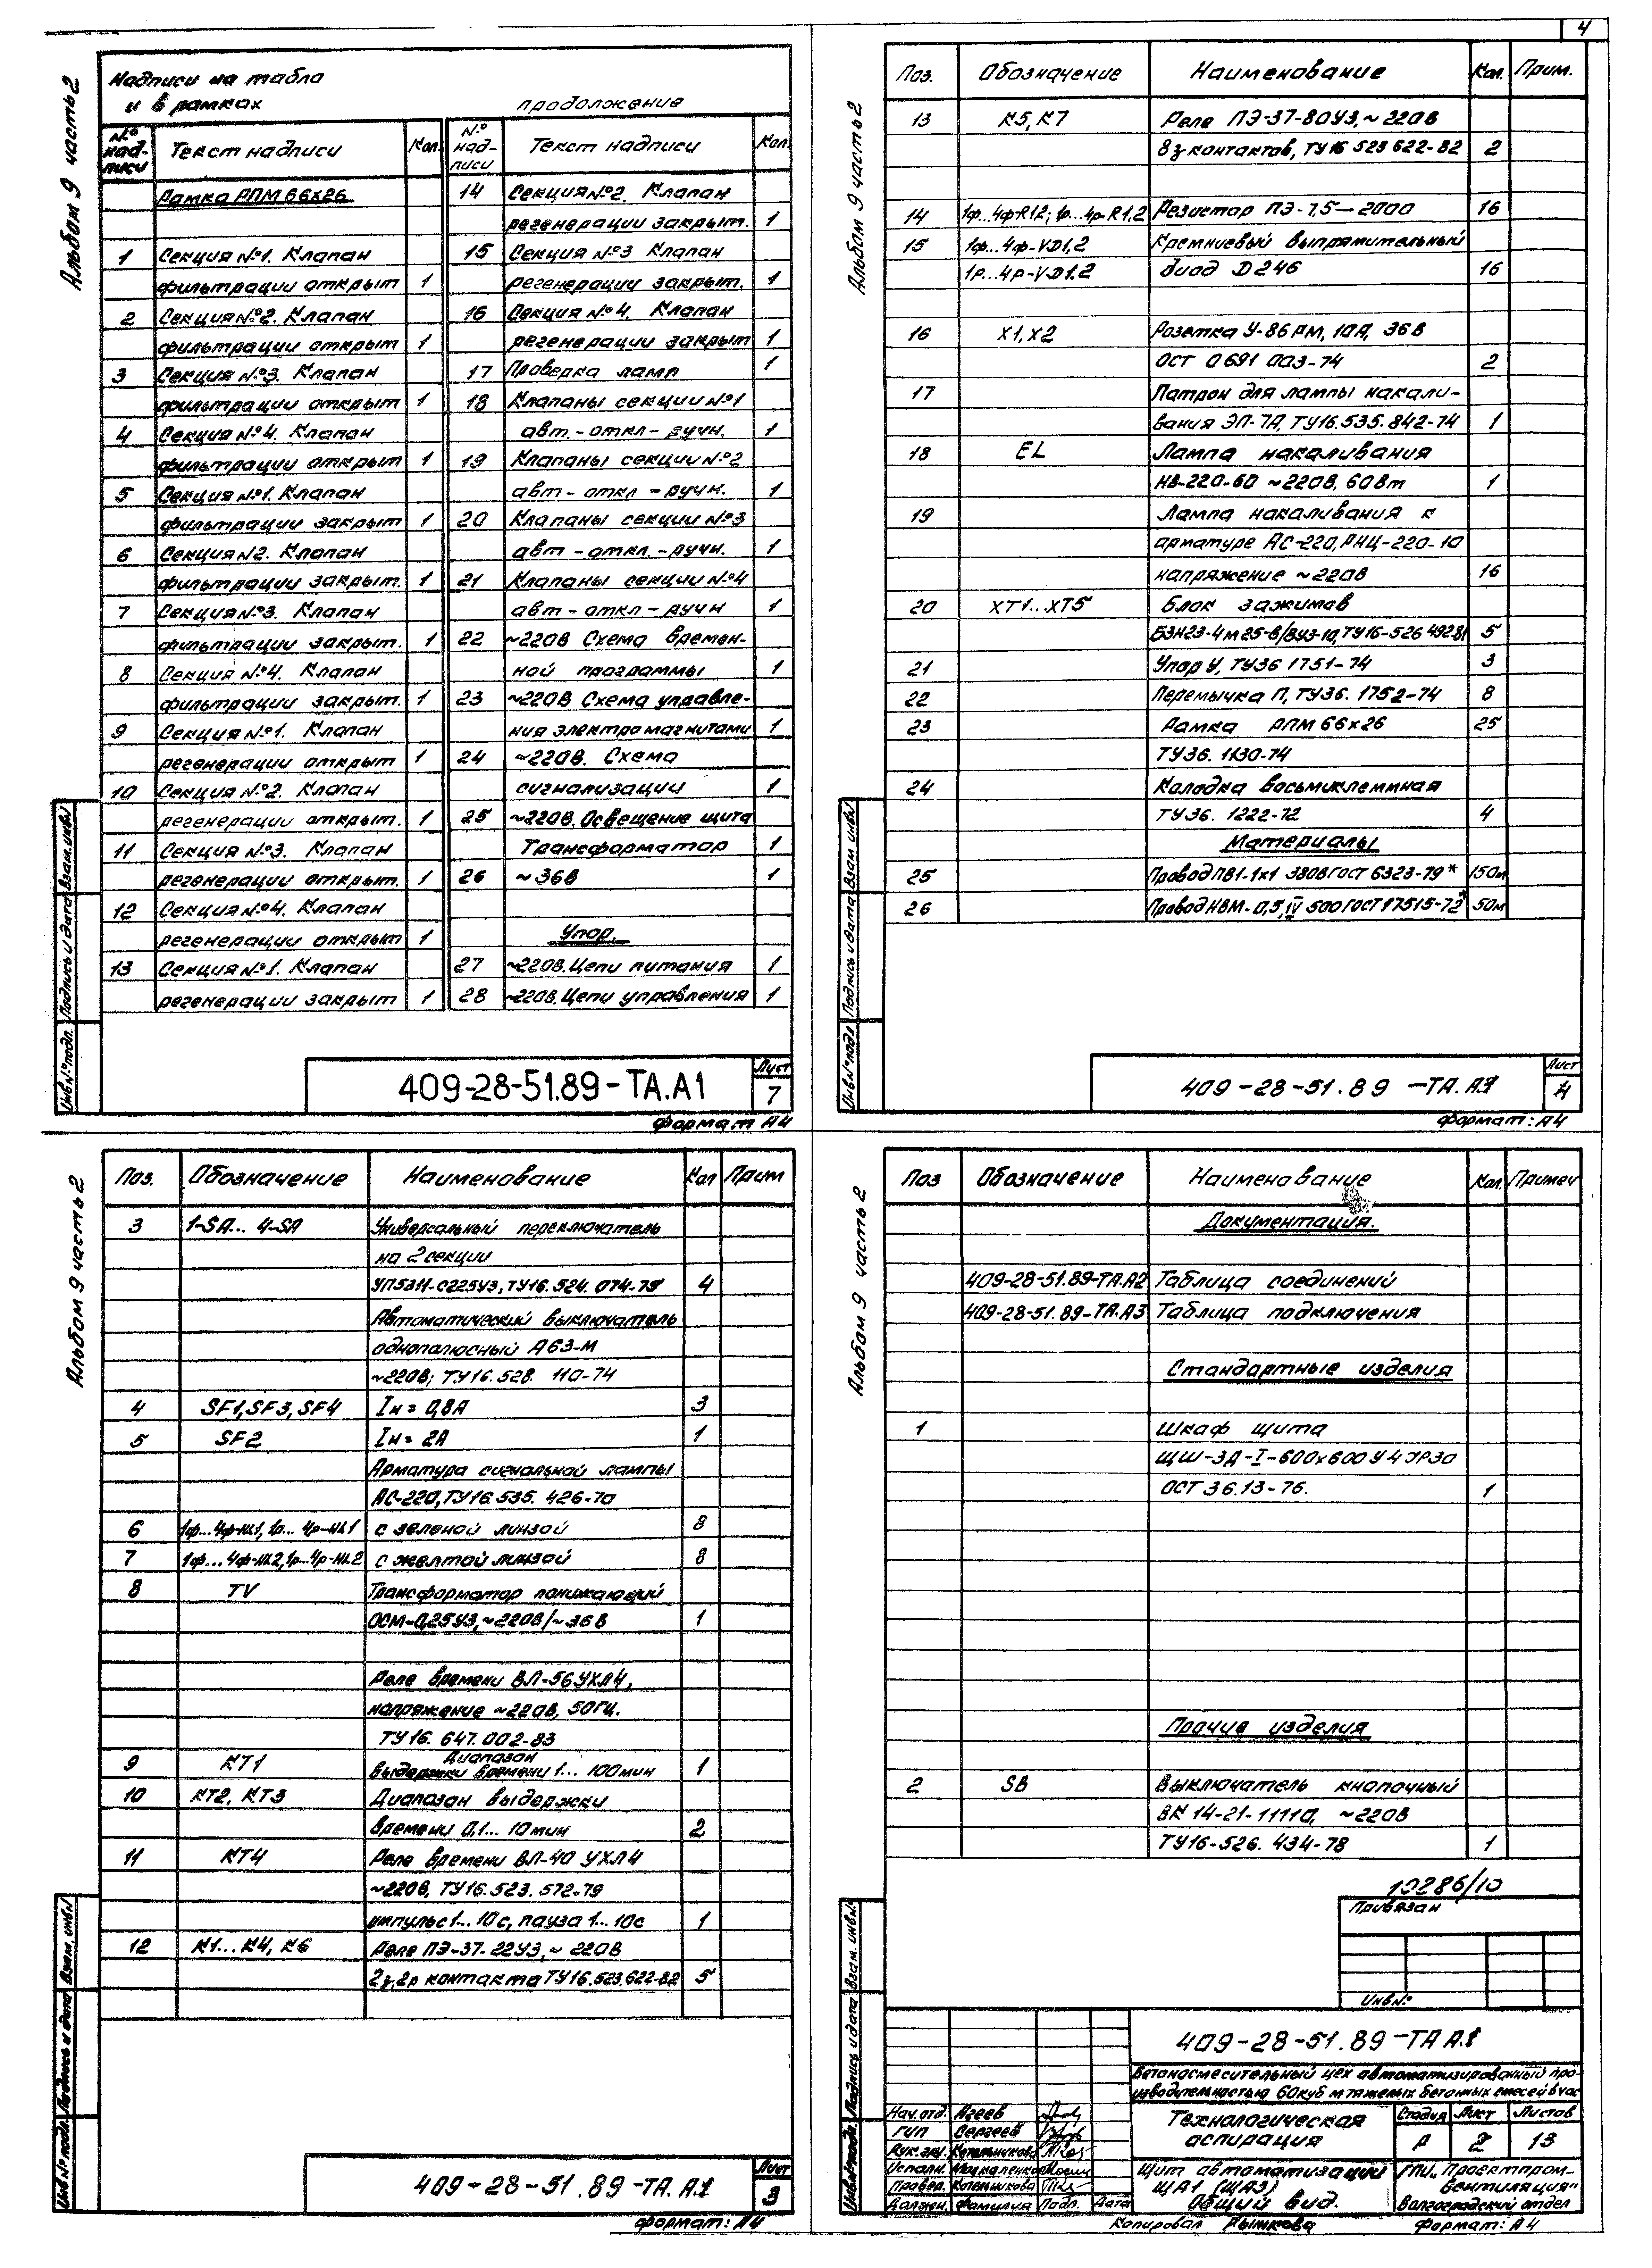 4
Альбом 9 часть 2
Надписи на табло
и в рамках продолжение
№ надписи Текст надписи Кол. № надписи Текст надписи Кол.
Рамка РПМ 66х26
1 Секция №1. Клапан
фильтрации открыт 1
2 Секция №2. Клапан
фильтрации открыт 1
3 Секция №3. Клапан
фильтрации открыт 1
4 Секция №4. Клапан
фильтрации открыт 1
5 Секция №1. Клапан
фильтрации закрыт 1
6 Секция N2. Клапан
фильтрации закрыт. 1
7 Секция №3. Клапан
фильтрации закрыт. 1
8 Секция №4. Клапан
фильтрации закрыт. 1
9 Секция №1. Клапан
регенерации открыт 1
10 Секция №2. Клапан
регенерации открыт. 1
11 Секция №3. Клапан
регенерации открыт. 1
12 Секция №4. Клапан
регенерации открыт 1
13 Секция №1. Клапан
регенерации закрыт 1
14 Секция №2. Клапан
регенерации закрыт. 1
15 Секция №3 Клапан
регенерации закрыт. 1
16 Секция №4. Клапан
регенерации закрыт 1
17 Проверка ламп 1
18 Клапаны секции №1
авт.-откл-ручн. 1
19 Клапаны секции №2
авт-откл-ручн. 1
20 Клапаны секции №3
авт-откл.-ручн. 1
21 Клапаны секции №4
авт-откл-ручн 1
22 ~220В Схема времен-
ной программы 1
23 ~220В Схема управле-
ния электромагнитами 1
24 ~220В. Схема
сигнализации 1
25 ~220В. Освещение щита
Трансформатор 1
26 ~36В 1
Упор.
27 ~220В. Цепи питания 1
28 ~220В. Цепи управления 1
Инв№подл. Подпись и дата Взам.инв№
409-28-51.89-ТА.А1
Лист
7
формат А4
Альбом 9 часть 2
Поз. Обозначение Наименование Кол. Прим.
13 К5, К7 Реле ПЭ-37-80У3, ~220В
8з контактов, ТУ16 523 622-82 2
14 1ф...4ф-R1,2; 1р...4р-R1,2 Резистор ПЭ-7,5-2000 16
15 1ф...4ф-VD1,2 Кремниевый выпрямительный
1р...4р-VD1.2 диод Д246 16
16 Х1, Х2 Розетка У-86РМ, 10А, 36В
ОСТ 0 691 003-74 2
17 Патрон для лампы накали-
вания ЭП-7А, ТУ16.535.842-74 1
18 EL Лампа накаливания
НВ-220-60 ~220В, 60Вт 1
19 Лампа накаливания к
арматуре АС-220, РНЦ-220-10
напряжение ~220В 16
20 ХТ1...ХТ5 Блок зажимов
5
21 Упор У, ТУ36 1751-74 3
22 Перемычка П, ТУ36. 1752-74 8
23 Рамка РПМ 66х26 25
ТУ36. 1130-74
24 Колодка восьмиклеммная
ТУ36. 1222-72 4
Материалы
25 Провод ПВ1-1х1 380В ГОСТ 6323-79* 150м
26 Провод НВМ-0,5 IV 500 ГОСТ 17515-72* 50м
Инв№подл Подпись и дата Взам инв№
409-28-51.89-ТА.А1
Лист
4
формат: А4
Альбом 9 часть 2
Поз. Обозначение Наименование Кол Прим
3 1-SA...4-SA Универсальный переключатель
на 2 секции
УП5311-С225У3, ТУ16.524.074-75 4
Автоматический выключатель
однополюсный А63-М
~220В; ТУ16.528. 110-74
4 SF1, SF3, SF4 Iн=0,8А 3
5 SF2 Iн=2А 1
Арматура сигнальной лампы
АС-220, ТУ16.535. 426-70
6 1ф...4ф-HL1, 1р...4р-HL1 с зеленой линзой 8
7 1ф...4ф-HL2, 1р...4р-HL2 с желтой линзой 8
8 TV Трансформатор понижающий
ОСМ-0,25У3, ~220В/~36В 1
Реле времени ВЛ-56УХЛ4,
напряжение ~220В, 50Гц.
ТУ16. 647. 002-83
9 КТ1 Диапазон
выдержки времени 1...100мин 1
10 КТ2, КТ3 Диапазон выдержки
времени 0,1...10мин 2
11 КТ4 Реле времени ВЛ-40 УХЛ4
~220В, ТУ16.523.572-79
импульс 1...10с, пауза 1...10с 1
12 К1...К4, К6 Реле ПЭ-37-22У3, ~220В
2з,2р контакта ТУ16.523.622-82 5
Инв№подл. Подпись и дата Взам. инв№
409-28-51.89-ТА.А1
Лист
3
формат: А4
Альбом 9 часть 2
Поз Обозначение Наименование Кол. Примеч
Документация.
409-28-51.89-ТА.А2 Таблица соединений
409-28-51.89-ТА.А3 Таблица подключения
Стандартные изделия
1 Шкаф щита
ЩШ-ЗД-I-600х600У4 IР30
ОСТ 36.13-76. 1
Прочие изделия
2 SB Выключатель кнопочный
ВК 14-21-11110, ~220В
ТУ16-526. 434-78 1
10286/10
Привязан
Инв№
Инв№подл. Подпись и дата Взам. инв№
409-28-51.89-ТА А.1
Бетоносмесительный цех автоматизированный про-
изводительностью 60куб м тяжелых бетонных смесей в час
Нач.отд. Агеев
ГИП Сергеев
Рук.гр. Котельникова
Исполн. Москаленко
Провер. Котельникова
Должн. Фамилия Подп. Дата
Технологическая
аспирация
Стадия Лист Листов
Р 2 13
Щит автоматизации
ЩА1 (ЩА3)
Общий вид.
ГПИ „Проектпром-
вентиляция"
Волгоградский отдел
Копировал Рычкова формат: А4